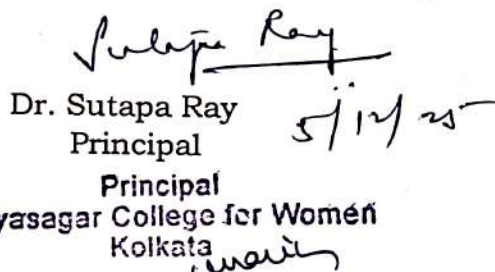 Sutapa Ray
Dr. Sutapa Ray
5/12/25
Principal
Principal
yasagar College for Women
Kolkata